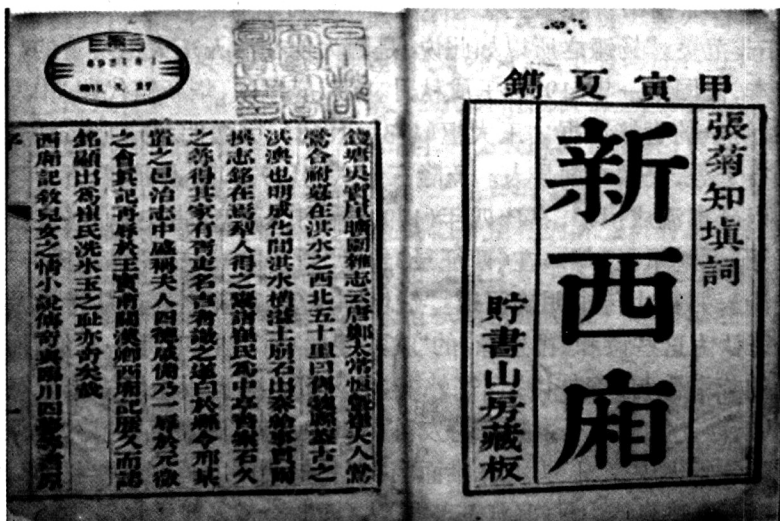 甲寅夏鐫
張菊知填詞
新西廂
貯書山房藏板
錢塘吳寶厓曠園雜志云唐鄭太常恒曁崔夫人鶯
鶯合祔墓在淇水之西北五十里曰舊魏縣蓋古之
淇澳也明成化間淇水橫溢土崩石出秦給事貫所
撰志銘在焉犁人得之鬻諸崔氏爲中亭香案石久
之尋得其家有胥吏名吉者識之遂白於縣令邢某
置之邑治志中盛稱夫人四德咸備乃一辱於元微
之會眞記再辱於王實甫關漢卿西廂記歷久而誌
銘顯出爲崔氏洗冰玉之恥亦奇矣哉
西廂記敘兒女之情小說傳奇與臨川四夢等原